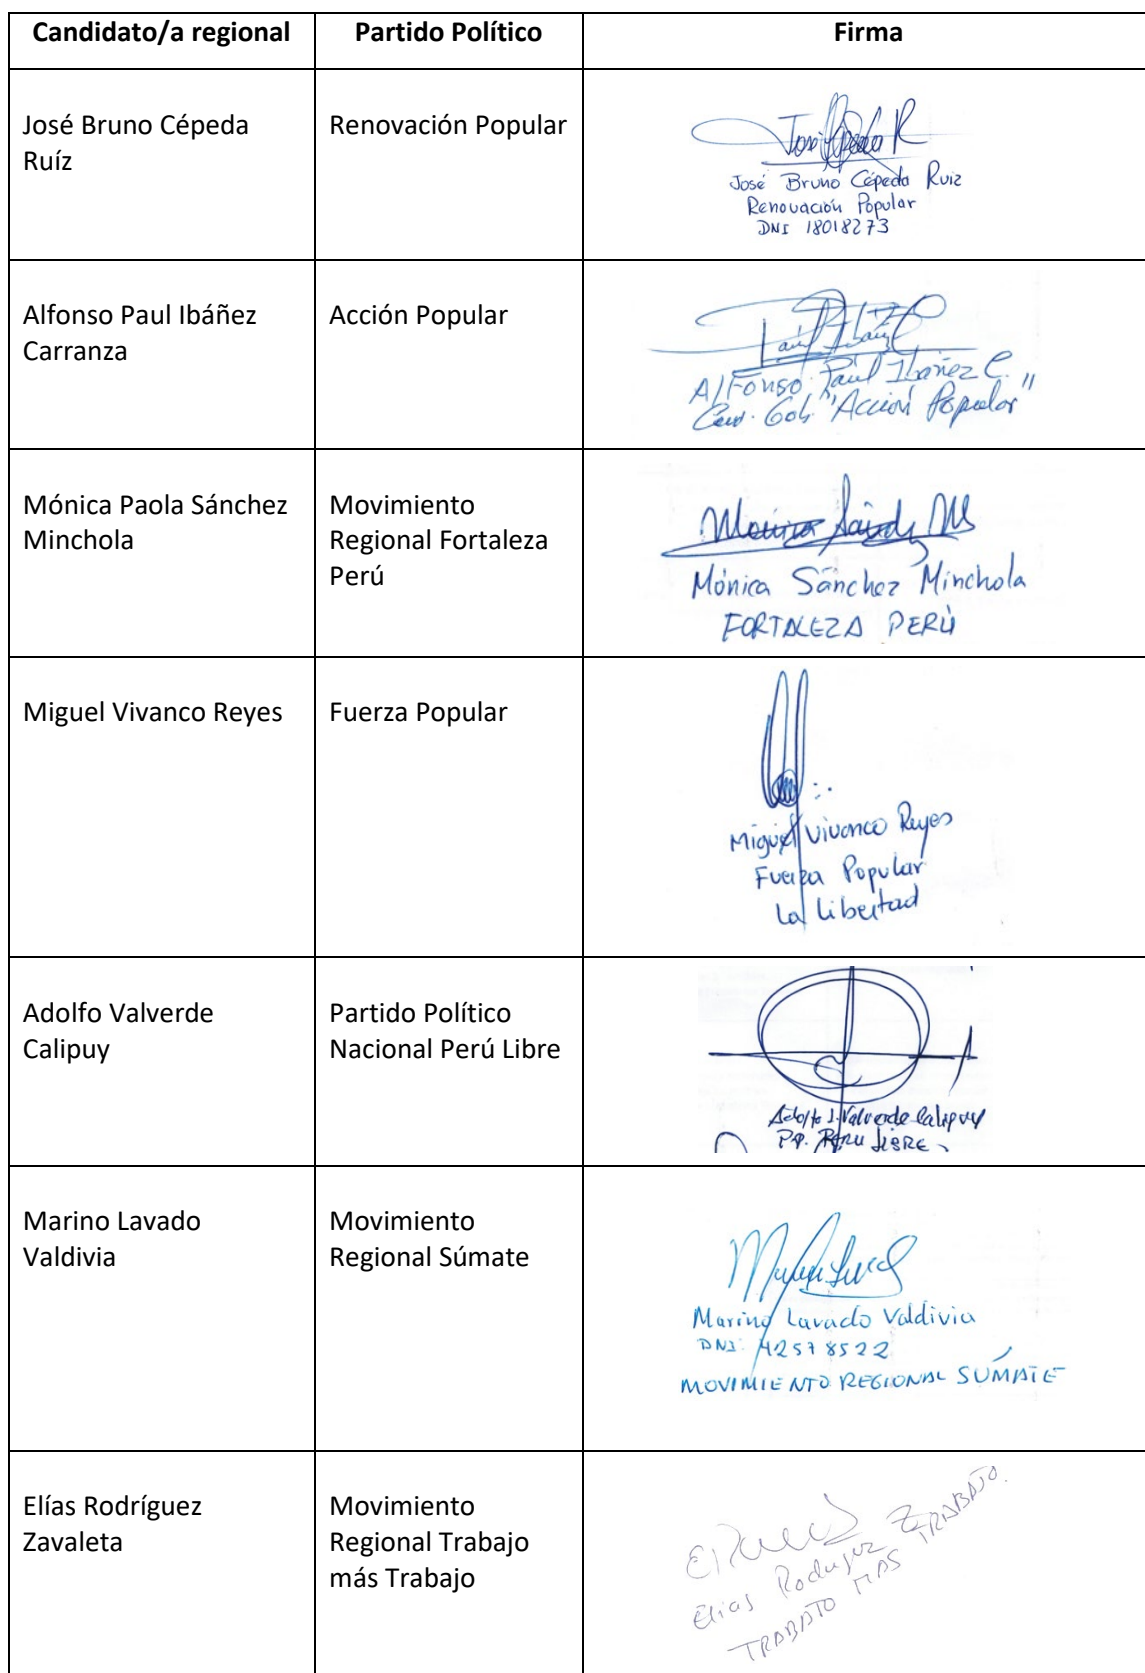 Candidato/a regional
Partido Político
Firma
José Bruno Cépeda
Ruíz
Renovación Popular
José Bruno Cépeda Ruiz
Renovación Popular
DNI 18018273
Alfonso Paul Ibáñez
Carranza
Acción Popular
Alfonso Paul Ibáñez C.
Can. Gob. "Acción Popular"
Mónica Paola Sánchez
Minchola
Movimiento
Regional Fortaleza
Perú
Mónica Sánchez Minchola
FORTALEZA PERÚ
Miguel Vivanco Reyes
Fuerza Popular
Miguel Vivanco Reyes
Fuerza Popular
La Libertad
Adolfo Valverde
Calipuy
Partido Político
Nacional Perú Libre
Adolfo J. Valverde Calipuy
P.P. PERU LIBRE
Marino Lavado
Valdivia
Movimiento
Regional Súmate
Marino Lavado Valdivia
DNI: 42578522
MOVIMIENTO REGIONAL SÚMATE
Elías Rodríguez
Zavaleta
Movimiento
Regional Trabajo
más Trabajo
Elias Rodriguez Z
TRABAJO MAS TRABAJO.